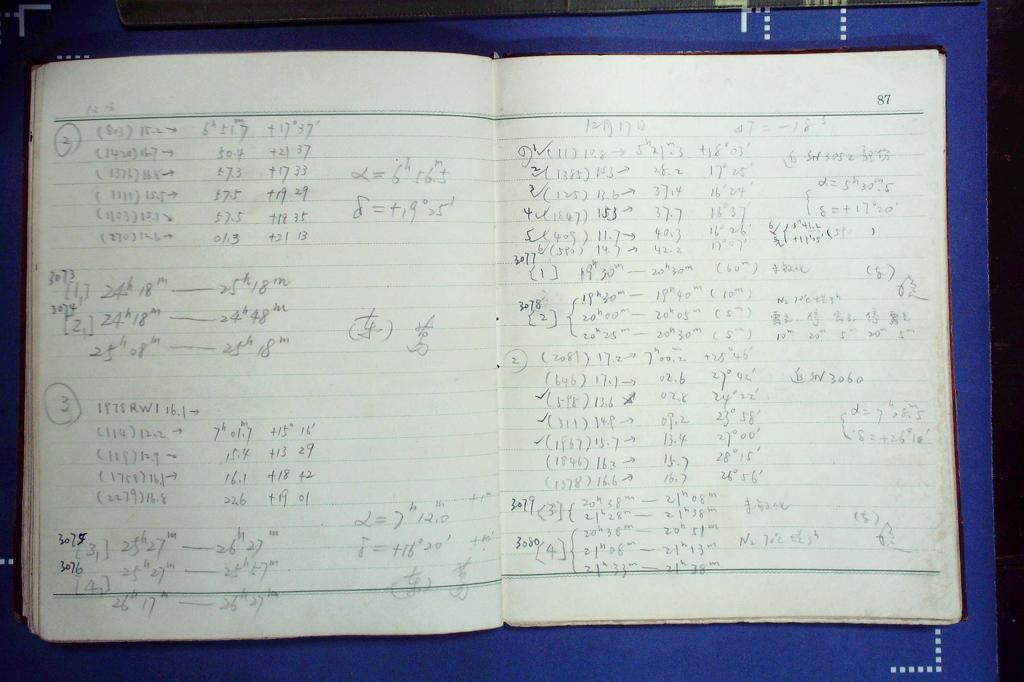 12.16
② (803) 15.2→ 6ʰ51.7ᵐ +17°37′
(1420) 16.7→ 50.4 +21 37
57.3 +17 33
15.5→ 57.5 +19 29
(1103) 15.1→ 57.5 +18 35
(270) 12.6→ 01.3 +21 13
α=6ʰ56.ᵐ5
δ=+19°25′
3073 [1] 24ʰ18ᵐ——25ʰ18ᵐ
3074 [2] 24ʰ18ᵐ——24ʰ48ᵐ
25ʰ08ᵐ——25ʰ18ᵐ
③ 1978RW1 16.1→
(114) 12.2→ 7ʰ01.7ᵐ +15°16′
(119) 12.9→ 15.4 +13 29
(1751) 16.1→ 16.1 +18 42
(2279) 16.8 22.6 +19 01
α=7ʰ12.ᵐ0 +1ᵐ
δ=+16°20′ +10′
3075 [3] 25ʰ27ᵐ——26ʰ27ᵐ
3076 [4] 25ʰ27ᵐ——25ʰ57ᵐ
26ʰ17ᵐ——26ʰ27ᵐ
87
12月17日 ΔT=−18ˢ
1✓(11) 10.8→ 5ʰ21ᵐ.3 +18°03′
2✓(1385) 15.3→ 28.2 17°25′
3✓(125) 13.6→ 37.4 16°24′
4✓(1847) 15.3→ 37.7 16°37′
5✓(409) 11.7→ 40.3 16°26′
6✓(590) 14.7→ 42.2 17°07′
近 SN3052
α=5ʰ30ᵐ.5
δ=+17°20′
3077 [1] 19ʰ30ᵐ——20ʰ30ᵐ (60ᵐ)
3078 [2] 19ʰ30ᵐ——19ʰ40ᵐ (10ᵐ)
20ʰ00ᵐ——20ʰ05ᵐ (5ᵐ)
20ʰ25ᵐ——20ʰ30ᵐ (5ᵐ) 10ᵐ 20ᵐ 5ᵐ 20ᵐ 5ᵐ
② (2081) 17.2→ 7ʰ00.2ᵐ +25°46′
(646) 17.1→ 02.6 27°02′ 近SN3060
✓(598) 13.6 02.8 24°22′
✓(311) 14.9→ 09.2 23°58′
✓(1967) 15.7→ 13.4 27°00′
(1846) 16.3→ 15.7 28°15′
(1378) 16.6→ 16.7 26°56′
α=7ʰ08.ᵐ5
δ=+26°10′
3079 [3] 20ʰ38ᵐ——21ʰ08ᵐ
21ʰ28ᵐ——21ʰ38ᵐ
3080 [4] 20ʰ38ᵐ——20ʰ51ᵐ
21ʰ08ᵐ——21ʰ13ᵐ
21ʰ33ᵐ——21ʰ38ᵐ